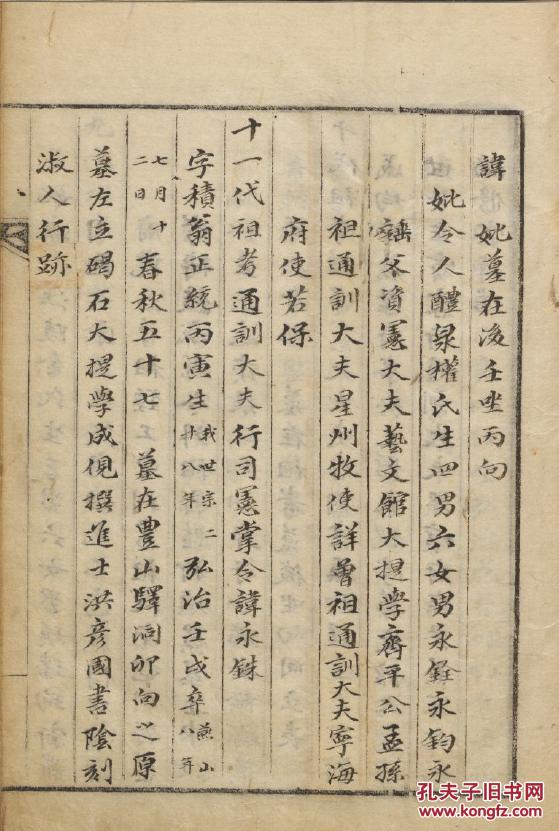 諱妣墓在後壬坐丙向
妣令人醴泉權氏生四男六女男永銓永鈞永
父資憲大夫藝文館大提學齊平公孟孫
祖通訓大夫星州牧使詳曾祖通訓大夫寧海
府使若保
十一代祖考通訓大夫行司憲掌令諱永銖
字積翁正統丙寅生我世宗二十八年弘治壬戌卒燕山八年
七月十二日春秋五十七墓在豊山驛洞卯向之原
墓左立碣石大提學成俔撰進士洪彦國書陰刻
淑人行跡
孔夫子旧书网
www.kongfz.com